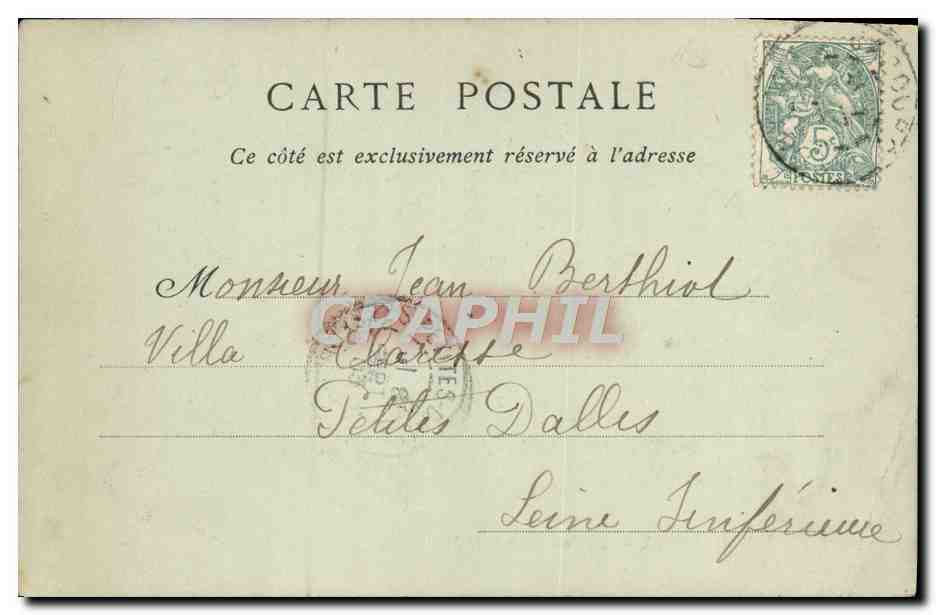 CARTE POSTALE
Ce côté est exclusivement réservé à l'adresse
5
POSTES
Monsieur Jean Berthiot
CPAPHIL
Villa
Petites Dalles
Seine Inférieure